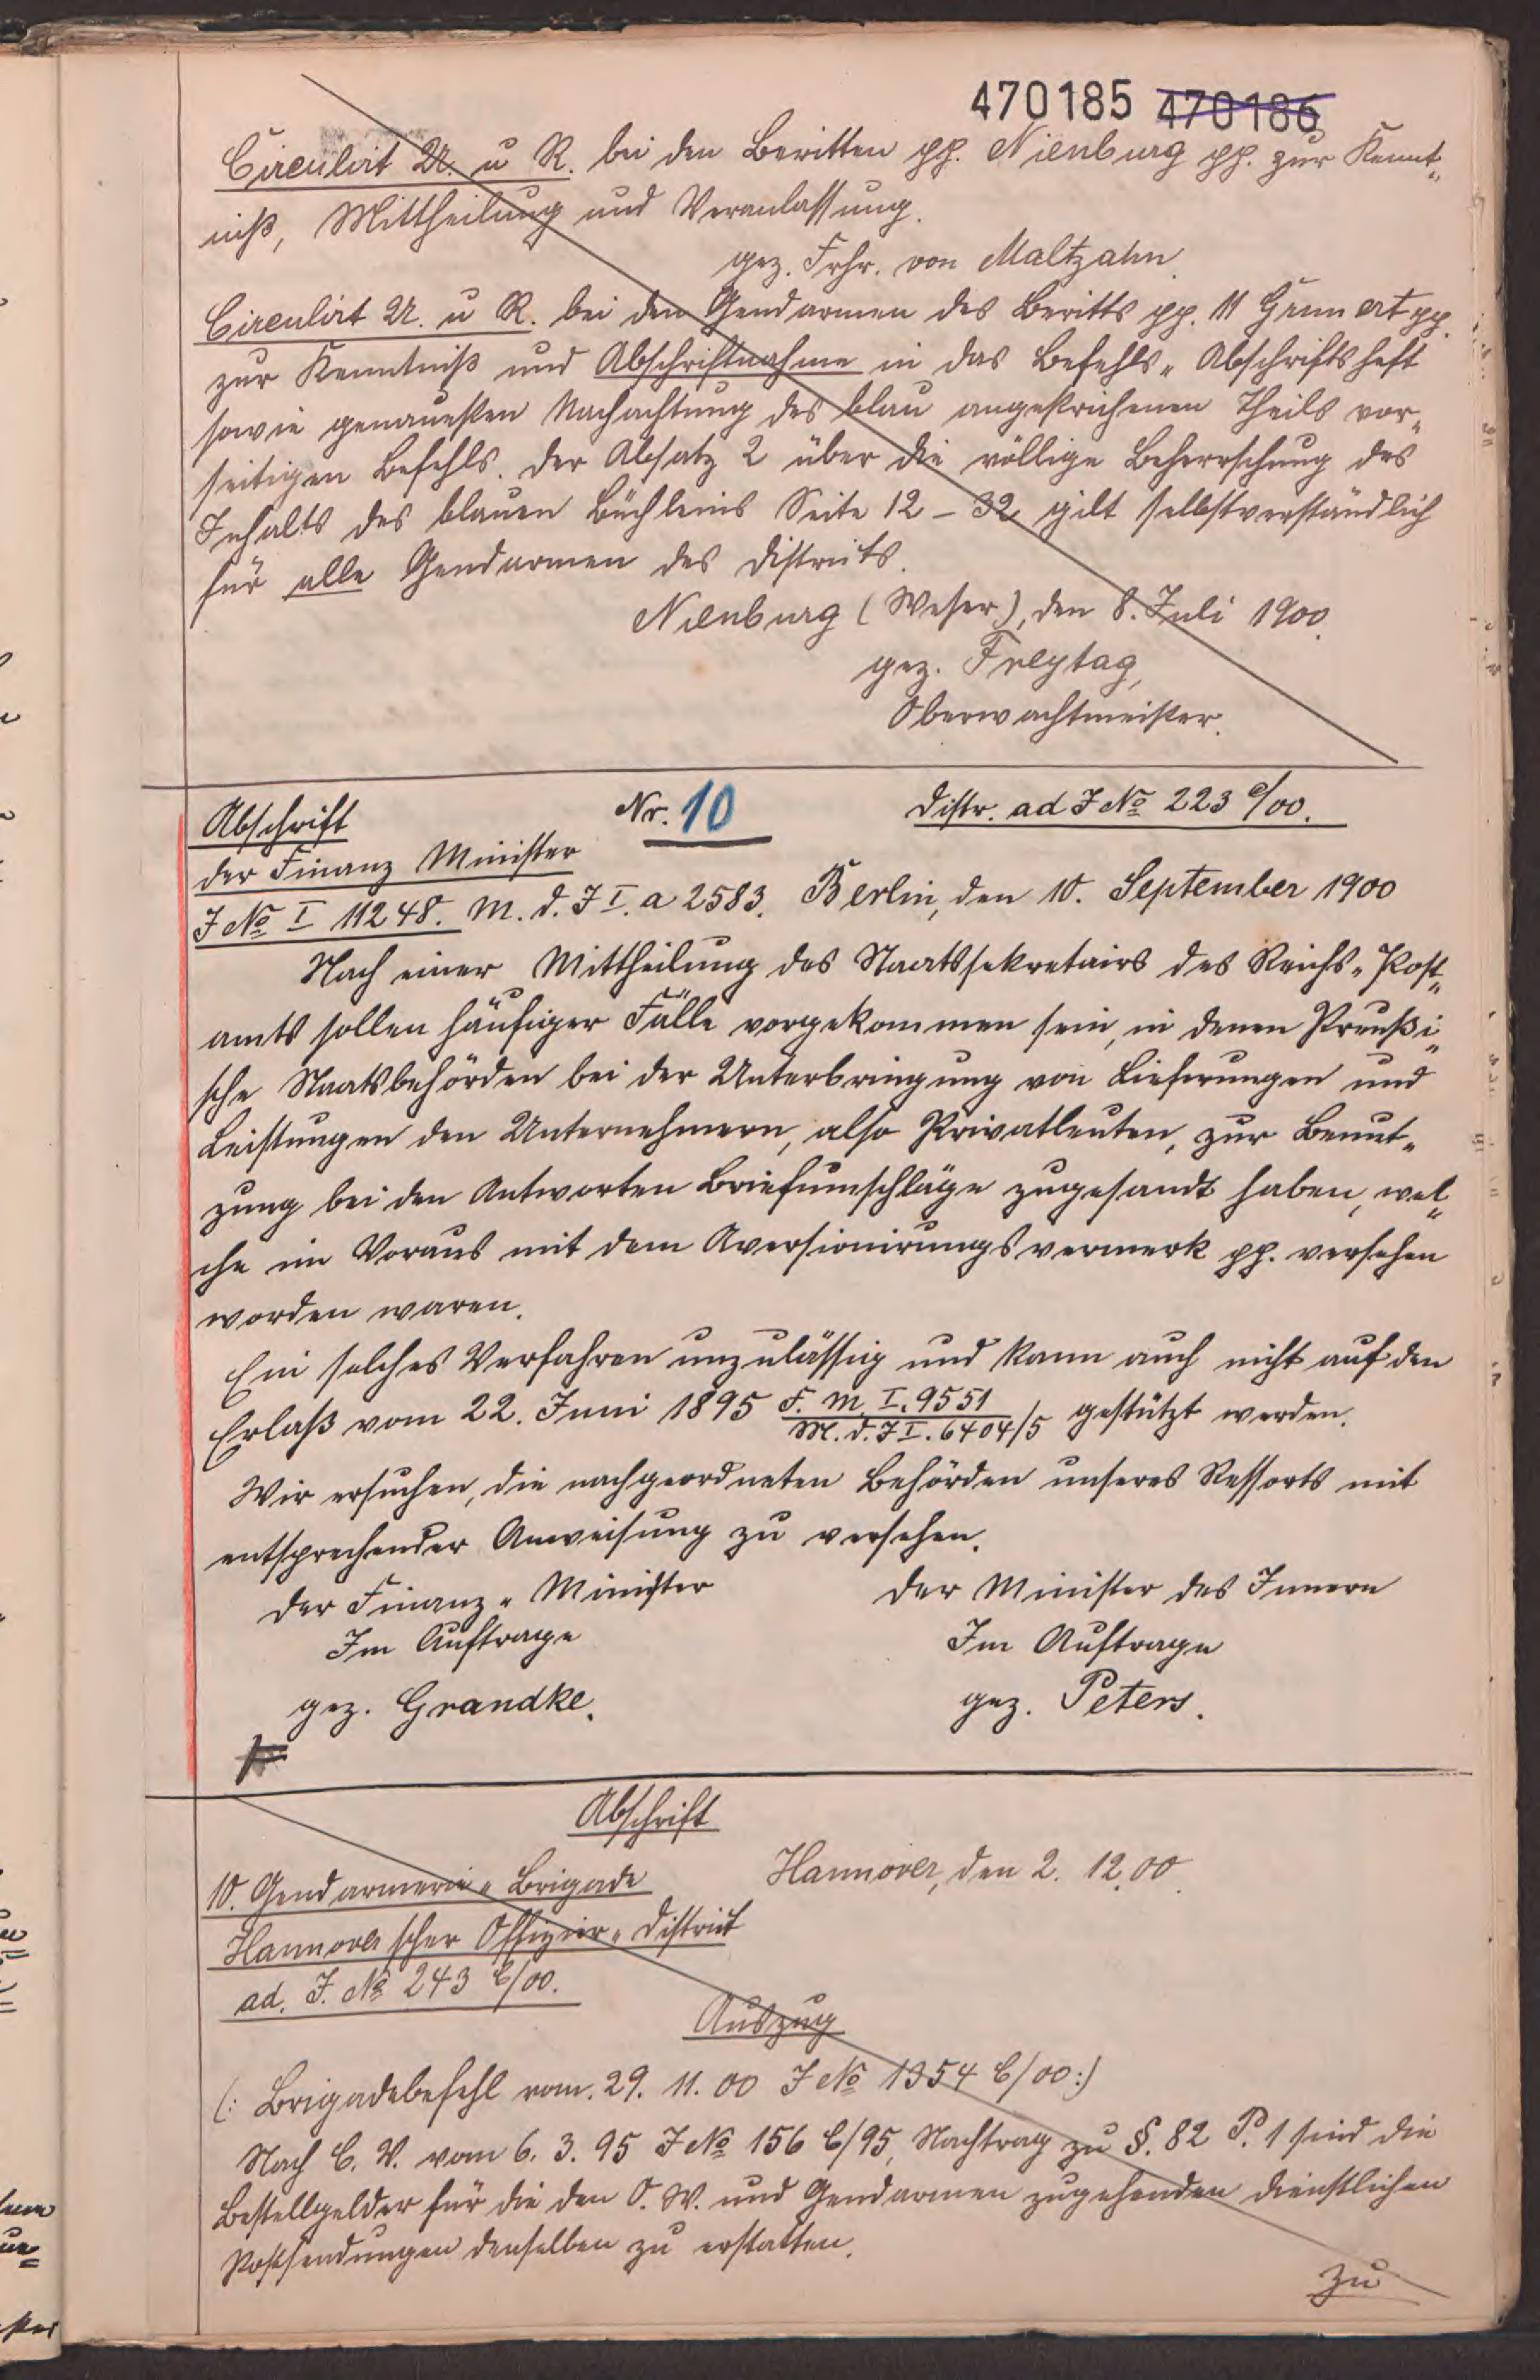 470185 470186
Circulirt U. u R. bei den Beritten pp. Nienburg pp. zur Kennt„
niß, Mittheilung und Veranlassung.
gez. Frhr. von Maltzahn.
Circulirt U. u R. bei den Gendarmen des Beritts pp. 11 Grunert pp.
zur Kenntniß und Abschriftnahme in das Befehls„ Abschriftsheft
sowie genauesten Nachachtung des blau angestrichenen Theils vor„
seitigen Befehls. Der Absatz 2 über die völlige Beherrschung des
Inhalts des blauen Büchleins Seite 12 – 32 gilt selbstverständlich
für alle Gendarmen des Districts.
Nienburg (Weser), den 8. Juli 1900.
gez. Freytag,
Oberwachtmeister.
Abschrift Nr. 10 Distr. ad J No 223 /00.
Der Finanz Minister
J No I 11248. M. d. J I. a 2583. Berlin, den 10. September 1900
Nach einer Mittheilung des Staatssekretairs des Reichs„ Post„
amts sollen häufiger Fälle vorgekommen sein, in denen Preußi„
sche Staatsbehörden bei der Unterbringung von Lieferungen und
Leistungen den Unternehmern, also Privatleuten, zur Benut„
zung bei den Antworten Briefumschläge zugesandt haben, wel„
che im Voraus mit dem Aversionirungsvermerk pp. versehen
worden waren.
Ein solches Verfahren unzulässig und kann auch nicht auf den
Erlaß vom 22. Juni 1895 F. M. I. 9551
M. d. J I. 6404/5 gestützt werden.
Wir ersuchen, die nachgeordneten Behörden unseres Ressorts mit
entsprechender Anweisung zu versehen.
Der Finanz„ Minister Der Minister des Innern
Im Auftrage Im Auftrage
gez. Grandke. gez. Peters.
Abschrift
10. Gendarmerie„ Brigade Hannover, den 2. 12.00.
Hannoverscher Offizier„ District
ad. J. No 243 C/00.
Auszug
(: Brigadebefehl vom. 29. 11. 00 J No 1354 C/00:)
Nach C. V. vom 6. 3. 95 J No 156 C/95, Nachtrag zu §. 82 P. 1 sind die
Bestellgelder für die den O. W. und Gendarmen zugehenden dienstlichen
Postsendungen denselben zu erstatten.
Zu